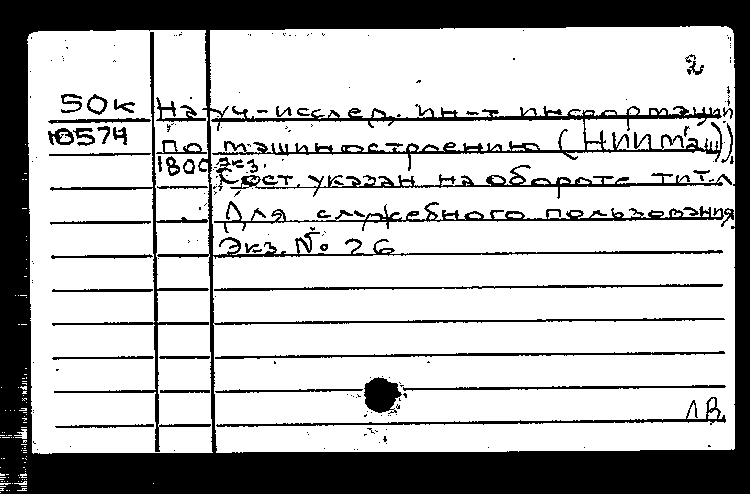 2
50к Науч.-исслед. ин-т информации
10574 по машиностроению (НИИмаш))
1800 экз.
Сост. указан на обороте тит.л
Для служебного пользования
Экз. № 26
ЛВ